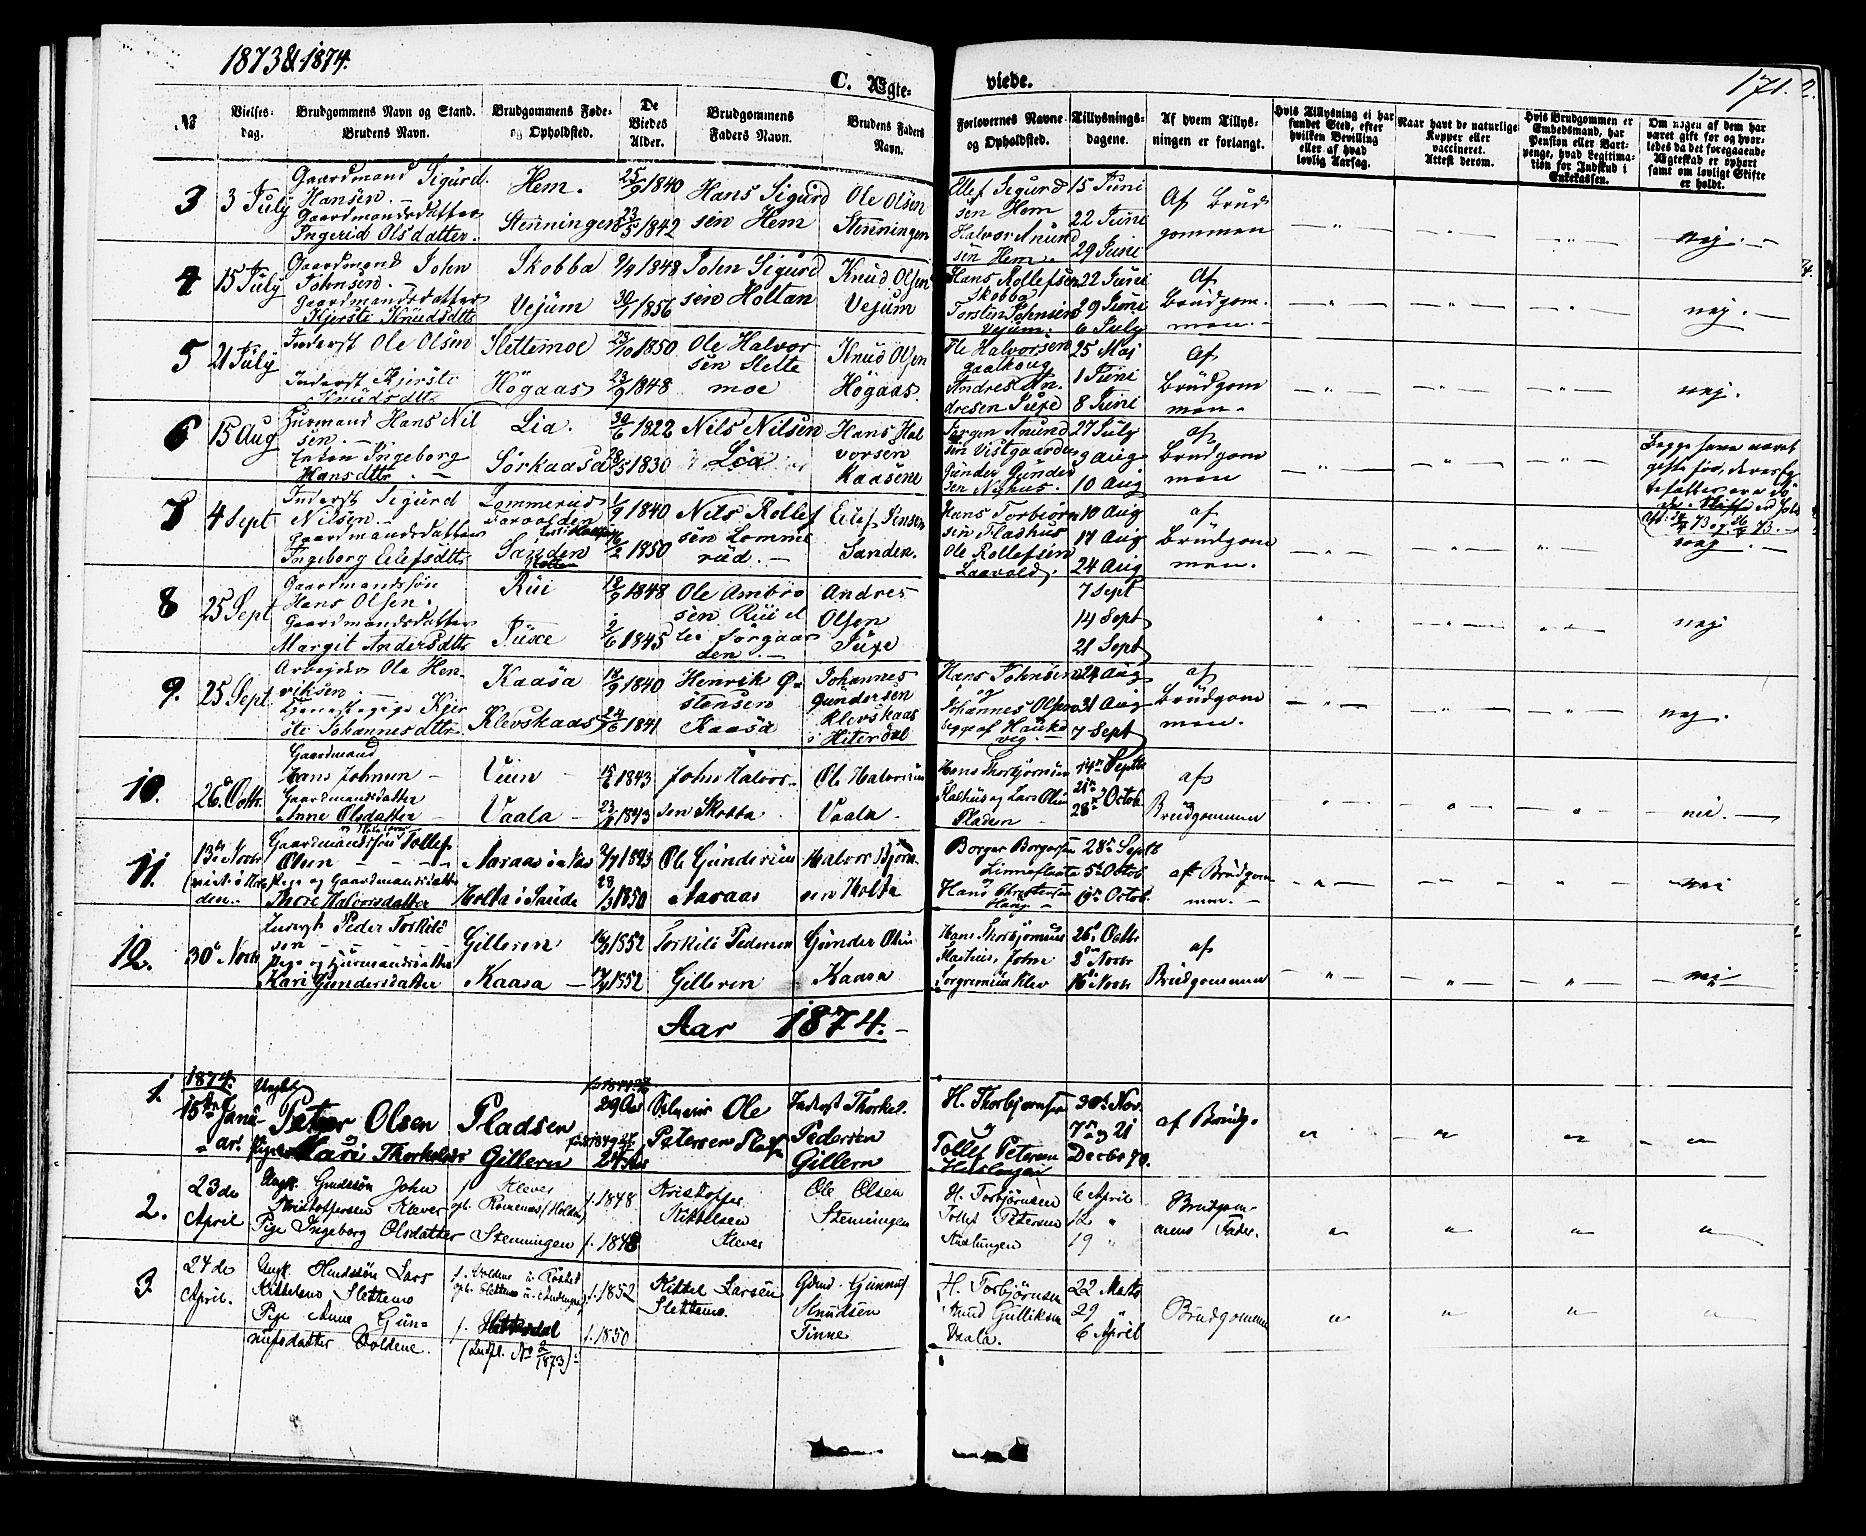 1873 & 1874.
C. Ægte-
viede.
171.
No
Vielses-
dag.
Brudgommens Navn og Stand.
Brudens Navn.
Brudgommens Føde-
og Opholdsted.
De
Viedes
Alder.
Brudgommens
Faders Navn.
Brudens Faders
Navn.
Forlovernes Navne
og Opholdsted.
Tillysnings-
dagene.
Af hvem Tillys-
ningen er forlangt.
Hvis Tillysning ei har
fundet Sted, efter
hvilken Bevilling
eller af hvad
lovlig Aarsag.
Naar havt de naturlige
Kopper eller
vaccineret.
Attest derom.
Hvis Brudgommen er
Embedsmand, har
Pension eller Vart-
penge, hvad Legitima-
tion for Indskud i
Enkekassen.
Om nogen af dem har
været gift før og hvor-
ledes da det foregaaende
Ægteskab er ophørt
samt om lovligt Skifte
er holdt.
3
3 July
Gaardmand Sigurd
Hansen.
Gaardmandsdatter
Ingerid Olsdatter.
Hem.
Stenningen
25/9 1840
23/5 1842
Hans Sigurd
sen Hem
Ole Olsen
Stenningen
Olef Sigurd
sen Hem
Halvor Anund
sen Hem.
15 Juni
22 Juni
29 Juni
Af Brud
gommen
nej.
4
15 July
Gaardmand John
Johnsen.
Gaardmandsdatter
Kjersti Knudsdtr
Skobba
Vejum
9/9 1848
30/7 1856
John Sigurd
sen Holtan
Knud Olsen
Vejum
Hans Rollefsen
Skobba
Torstin Johnsen
Vejum.
22 Juni
29 Juni
6 July
Af
Brudgom.
men.
nej.
5
21 July
Inderst Ole Olsen
Inderst Kjersti
Knudsdtr
Slettemoe
Högaas
23/10 1850
23/9 1848
Ole Halvor
sen Slette
moe
Knud Olsen
Högaas.
Ole Halvorsen
Andres An.
dresen Tufe
25 Maj
1 Juni
8 Juni
af
Brudgom
men.
nej.
6
15 Aug
Husmand Hans Nil
sen.
Enken Ingeborg
Hansdtr.
Lia.
Sörkaasa
30/6 1822
28/5 1830
Nils Nilsen
Lia
Hans Hal
vorsen
Kaasene
Jørgen Anund
sen Vistgaarden
Gunder Gunder
sen Nyhus.
27 July
3 Aug
10 Aug
af
Brudgom
men
Begge have været
gifte før, deres Eg
tefæller ere dö
de.
7
4 Sept
Inderst Sigurd
Nilsen.
Gaardmandsdatter
Ingeborg Eilefsdtr
Lommerud
Sanden
1/9 1840
16/2 1850
Nils Rollef
sen Lomme
rud.
Eilef Jensen
Sanden.
Hans Torbiorn
sen Fladhus
Ole Rollefsen
Laavold.
10 Aug
17 Aug
24 Aug
af
Brudgom
men.
nej.
8
25 Sept
Gaardmandssön
Hans Olsen.
Gaardmandsdatter
Margit Andersdtr
Rui
Tufte
19/9 1848
2/6 1845
Ole Ambro
sen Rui el
ler Torgaar
den.
Andres
Olsen
Tufe
7 Sept
14 Sept
21 Sept
nej
9.
25 Sept.
Arbejder Ole Hen-
riksen
Tjenestepige Kjer
sti Johannesdtr
Kaasa
Klevskaas
14/9 1840
24/6 1841
Henrik Ø-
stensen
Kaasa
Johannes
Gundersen
Klevskaas
i Hiterdal
Hans Johnsen
og
Johannes Olsen
begge af Hauke
veg.
24 Aug
31 Aug
7 Sept
af
Brudgom
men.
nej.
10.
26. Octbr.
Gaardmand
Hans Johnsen
Gaardmandsdatter
Anne Olsdatter
Vaala
15/2 1843
1843
John Halvor-
sen Skobba
Ole Halvorsen
Vaala.
Hans Thorbjørnsen
Fladhus og Lars Olsen
Pladsen
14de Septbr
21de
28de Octob.
af
Brudgommen
nei.
11.
13de Novbr
Gaardmandssøn Tollef
Olsen
Pige og Gaardmandsdatter
Thore Halvorsdatter
Holta i Saude
1843
1850
Ole Gundersen
Aaraas
Halvor Bjørn-
sen Holta
Borger Borgersen
Hans Christensen
28de Septb
5te Octob.
19de Octob.
af Brudgom-
men.
nei
12.
30te Novb
Inderst Peder Torkild
sen
Pige og Husmandsdatter
Kari Gundersdatter
Gilleren
Kaasa
1852
1852
Torkild Pedersen
Gilleren
Gunder Olsen
Kaasa
Hans Thorbjørnsen
Fladhus, John
Torgrimsen Klev
26de Octbr
2de Novbr
16de Novbr
af
Brudgommen
nei
Aar 1874.
1.
1874.
15de Janu-
ar.
Ungkl
Peter Olsen
Pige Kari Thorkelsdtr
Pladsen
Gillern
29 Aar
24 Aar
Selveier Ole
Petersen Pladsn
Inderst Thorkel
Pedersen
Gillern
H. Thorbjørnsen
og
Tollef Petersen
Haslungen
30te Nov.
7de og 21
Decbr 73.
af Brudg.
2.
23de
April
Ungk. Gaardssøn John
Kristoffersen Klever
Pige Ingeborg Olsdatter
f. Klever
oph. Romenæs (Holden)
Stenningen
f. 1848
f. 1848
Kristoffer
Kittelsen
Klever
Ole Olsen
Stenningen
H. Torbjörnsen
Tollef Petersen
Haslungen
6 April
12 "
19 "
Brudgom-
mens Fader.
3.
24de
April.
Ungk. Huussøn Lars
Kittelsen Slettemo
Pige Anne Gun-
nufsdatter Voldene.
f. Hitterdal
(Indfl. No 2/1873)
f. 1852
f. 1850
Kittel Larsen
Slettemo.
Gdmd. Gunnuf
Knudsen
Tinne
H. Torbjörnsen
Knud Gulliksen
Vaala.
22 Marts
29 "
6 April
Brudgommen